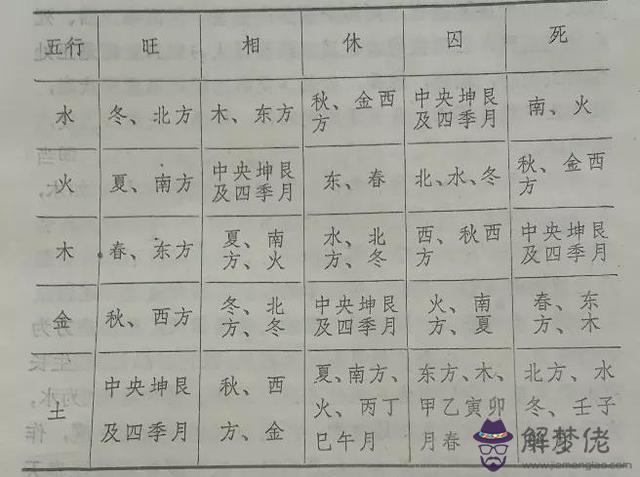 五行 旺 相 休 囚 死
水 冬、北方 木、东方 秋、金西方 中央坤艮及四季月 南、火
火 夏、南方 中央坤艮及四季月 东、春 北、水、冬 秋、金西方
木 春、东方 夏、南方、火 水、北方、冬 西、秋西方 中央坤艮及四季月
金 秋、西方 冬、北方、冬 中央坤艮及四季月 火、南方、夏 春、东方、木
土 中央坤艮及四季月 秋、西方、金 夏、南方、火、丙丁巳午月 东方、木、甲乙寅卯月春 北方、水冬、壬子
解梦佬
www.jiemenglao.com